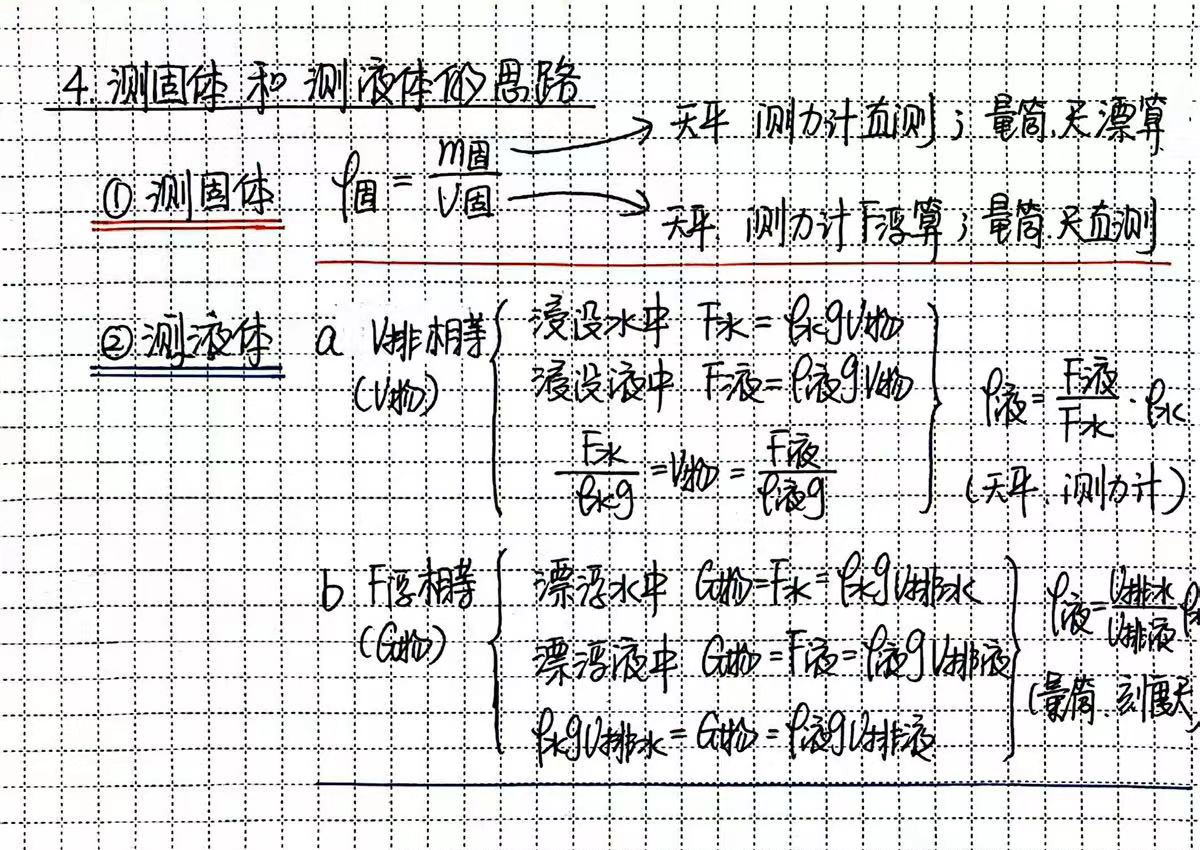 4. 测固体和测液体的思路
① 测固体 ρ固 = m固/V固 → 天平 测力计直测；量筒、尺漂算
→ 天平 测力计F浮算；量筒、尺直测
② 测液体 a V排相等 (V物)
浸没水中 F水 = ρ水gV物
浸没液中 F液 = ρ液gV物
F水/ρ水g = V物 = F液/ρ液g
ρ液 = F液/F水 · ρ水
(天平、测力计)
b F浮相等 (G物)
漂浮水中 G物 = F水 = ρ水gV排水
漂浮液中 G物 = F液 = ρ液gV排液
ρ水gV排水 = G物 = ρ液gV排液
ρ液 = V排水/V排液 ρ水
(量筒、刻度尺)